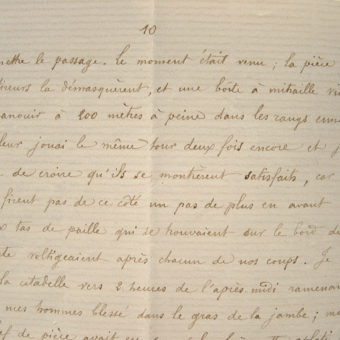 10
mettre le passage. Le moment était venu ; la pièce
tireurs la démasquèrent, et une boîte à mitraille vi
anouir à 200 mètres à peine dans les rangs enne
leur jouai le même tour deux fois encore et j
de croire qu'ils se montrèrent satisfaits, car
firent pas de ce côté un pas de plus en avant
x tas de paille qui se trouvaient sur le bord d
te voltigeaient après chacun de nos coups. Je
la citadelle vers 2 heures de l'après midi ramenan
mes hommes blessé dans le gras de la jambe ; m
ef de pièce avait